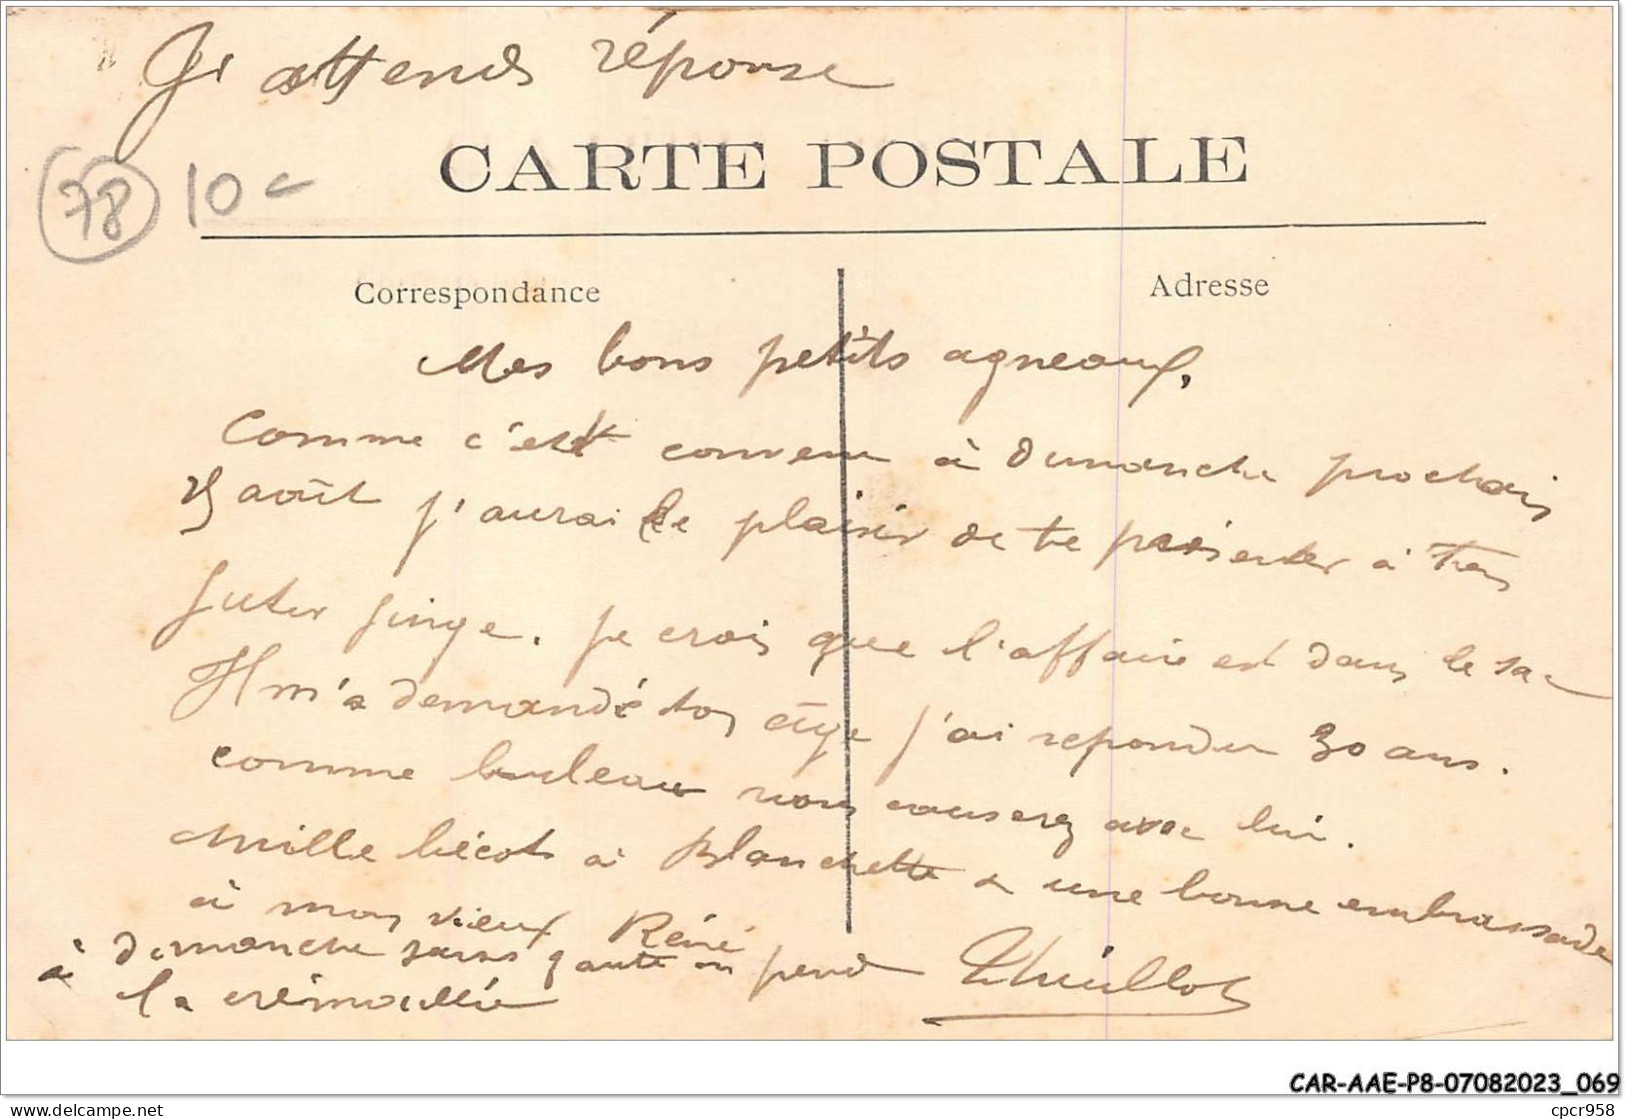 Je attends réponse
78 10
CARTE POSTALE
Correspondance
Adresse
Mes bons petits agneaux,
Comme c'est convenu à dimanche prochain
25 août j'aurai le plaisir de te présenter à ton
futur singe. je crois que l'affaire est dans le sac
Il m'a demandé ton âge j'ai repondu 30 ans.
comme vous causerez avec lui.
Mille bécots à Blanchette & une bonne embrassade
à mon vieux Réné
à dimanche sans faute on pend
à la crémaillée
CAR-AAE-P8-07082023_069
delcampe.net
cpcr958